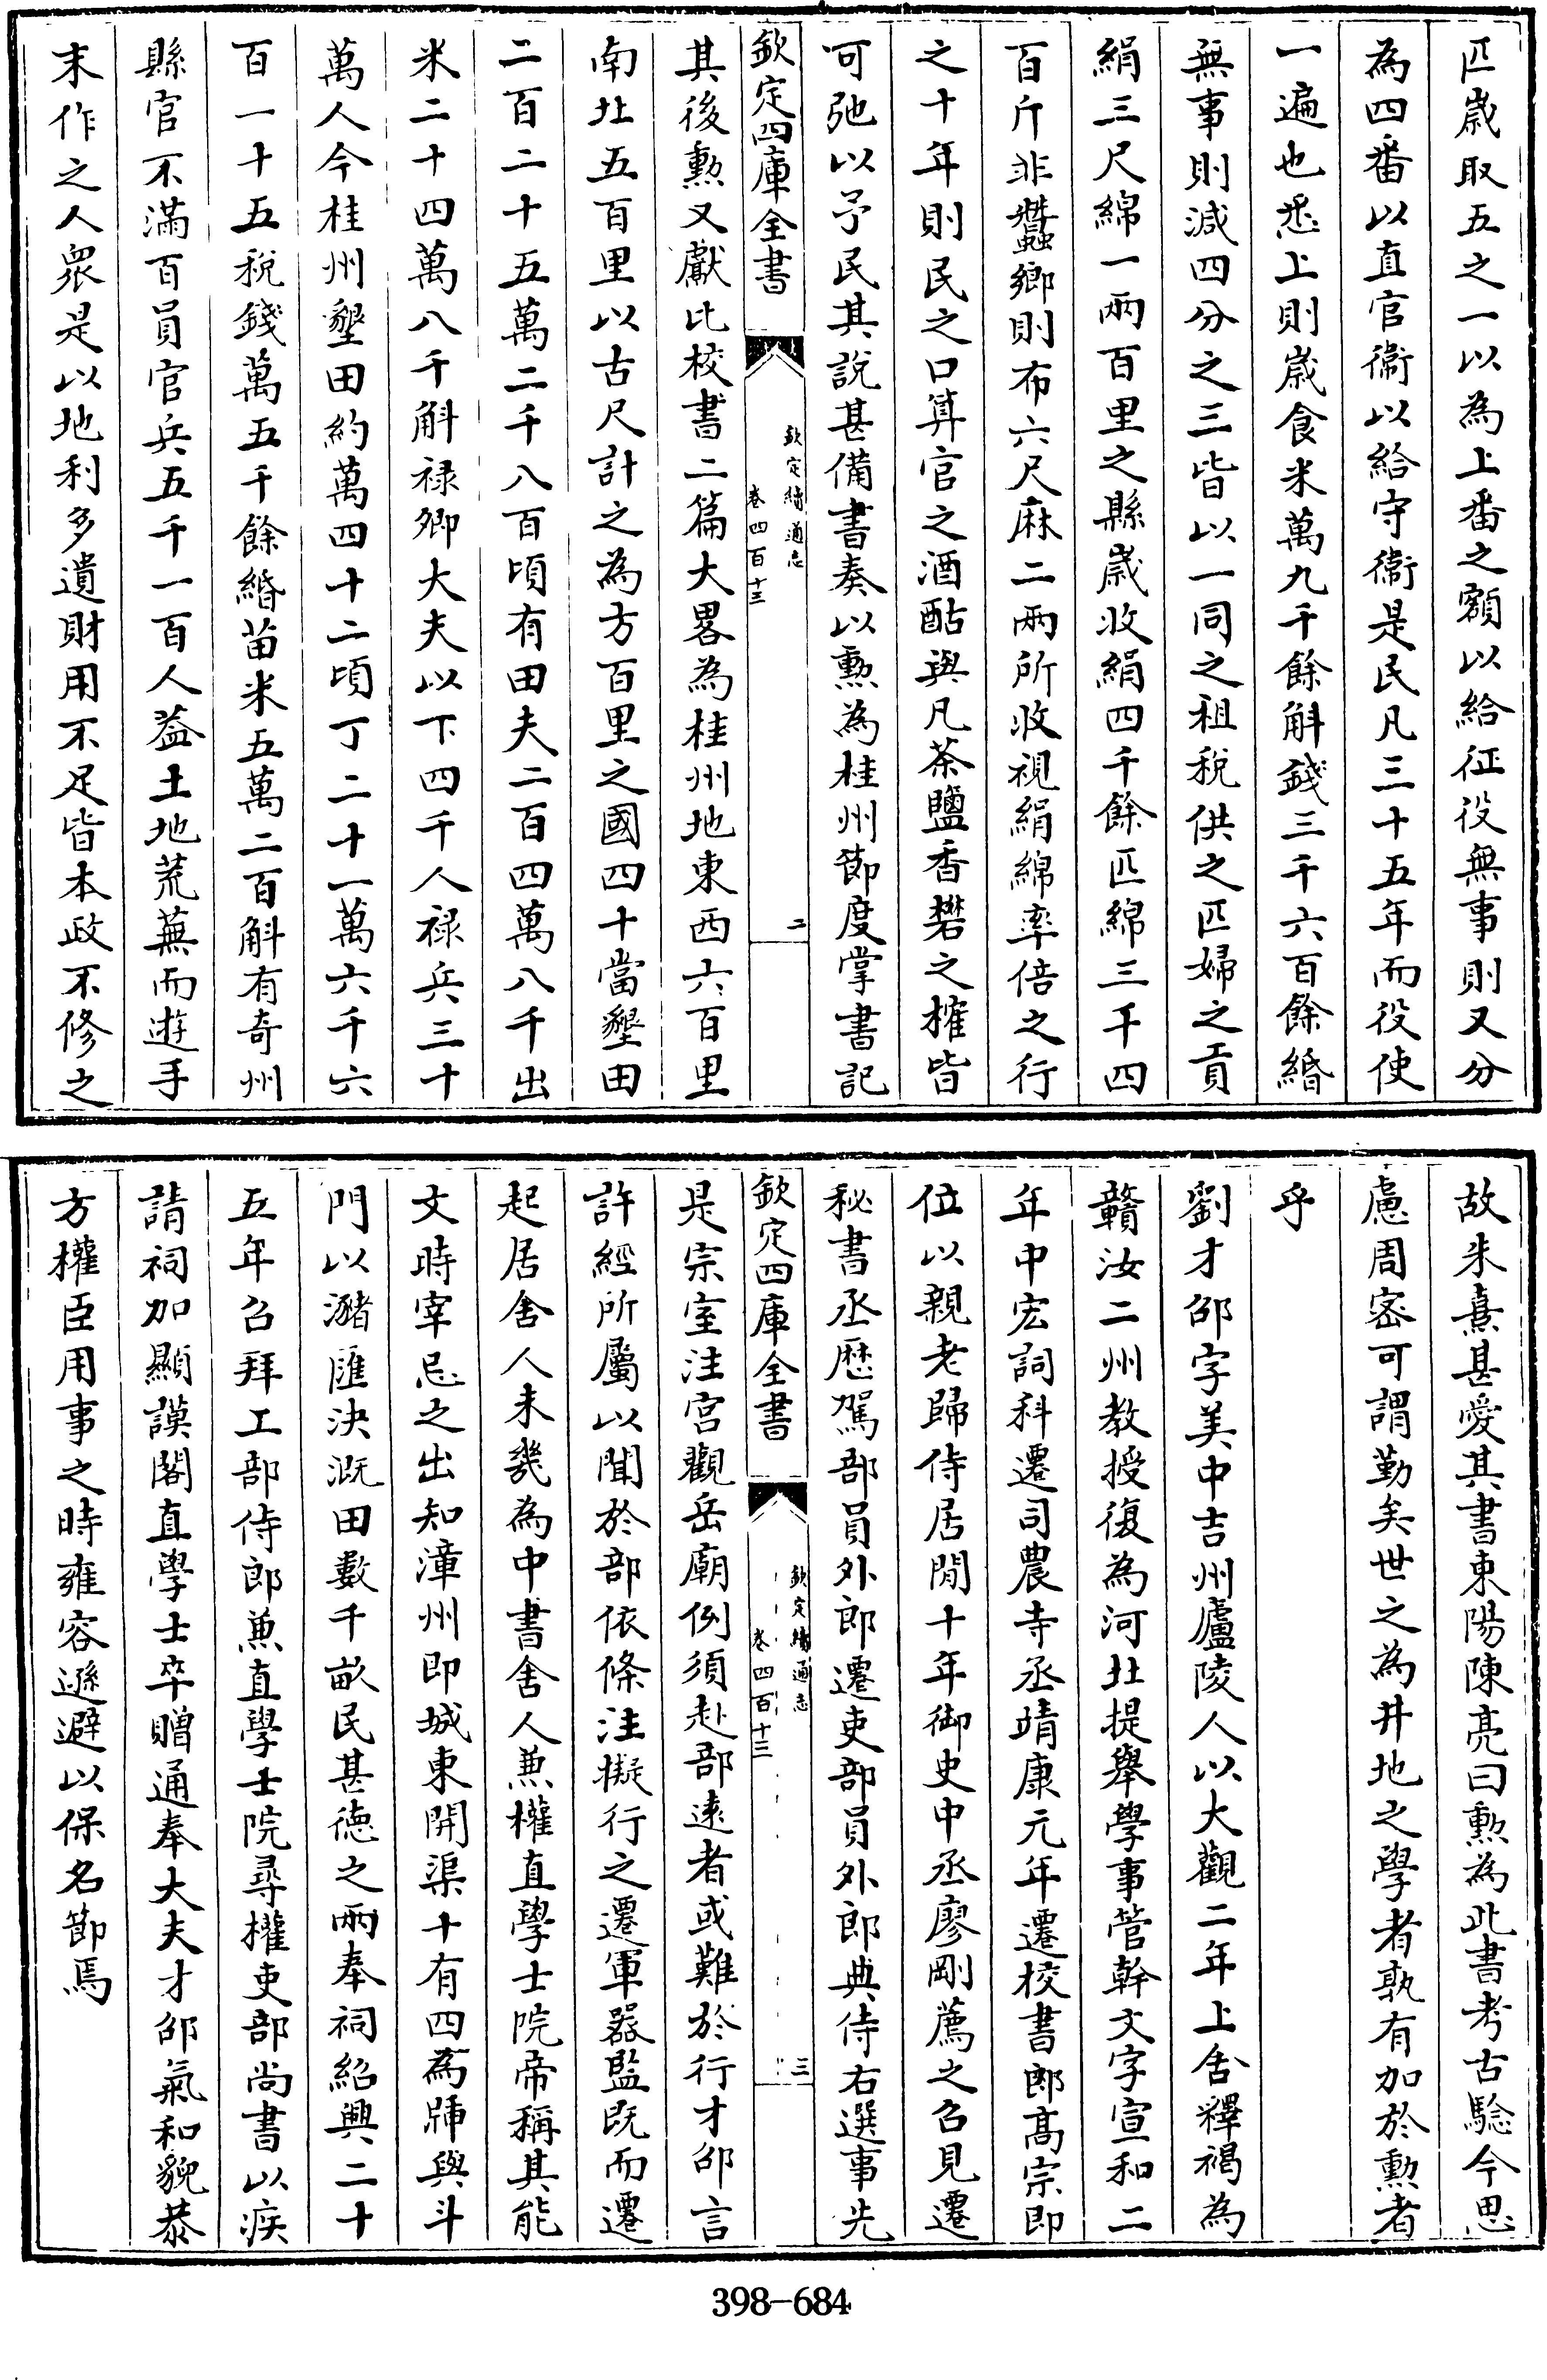 匹歲取五之一以為上番之額以給征役無事則又分
為四番以直官衞以給守衞是民凡三十五年而役使
一遍也悉上則歲食米萬九千餘斛錢三千六百餘緡
無事則減四分之三皆以一同之租稅供之匹婦之貢
絹三尺綿一兩百里之縣歲收絹四千餘匹綿三千四
百斤非蠶鄉則布六尺麻二兩所收視絹綿率倍之行
之十年則民之口算官之酒酤與凡茶鹽香礬之榷皆
可弛以予民其說甚備書奏以勲為桂州節度掌書記
欽定四庫全書
欽定續通志
卷四百十三
二
其後勲又獻比校書二篇大畧為桂州地東西六百里
南北五百里以古尺計之為方百里之國四十當墾田
二百二十五萬二千八百頃有田夫二百四萬八千出
米二十四萬八千斛禄卿大夫以下四千人禄兵三十
萬人今桂州墾田約萬四十二頃丁二十一萬六千六
百一十五稅錢萬五千餘緡苗米五萬二百斛有奇州
縣官不滿百員官兵五千一百人葢土地荒蕪而遊手
末作之人衆是以地利多遺財用不足皆本政不修之
故朱熹甚愛其書東陽陳亮曰勲為此書考古驗今思
慮周密可謂勤矣世之為井地之學者孰有加於勲者
乎
劉才邵字美中吉州廬陵人以大觀二年上舍釋褐為
贛汝二州教授復為河北提舉學事管幹文字宣和二
年中宏詞科遷司農寺丞靖康元年遷校書郎高宗即
位以親老歸侍居閒十年御史中丞廖剛薦之召見遷
秘書丞歷駕部員外郎遷吏部員外郎典侍右選事先
欽定四庫全書
欽定續通志
卷四百十三
三
是宗室注宮觀岳廟例須赴部遠者或難於行才邵言
許經所屬以聞於部依條注擬行之遷軍器監既而遷
起居舍人未幾為中書舍人兼權直學士院帝稱其能
文時宰忌之出知漳州即城東開渠十有四為牐與斗
門以瀦匯決溉田數千畝民甚德之兩奉祠紹興二十
五年召拜工部侍郎兼直學士院尋權吏部尚書以疾
請祠加顯謨閣直學士卒贈通奉大夫才邵氣和貌恭
方權臣用事之時雍容遜避以保名節焉
398-684